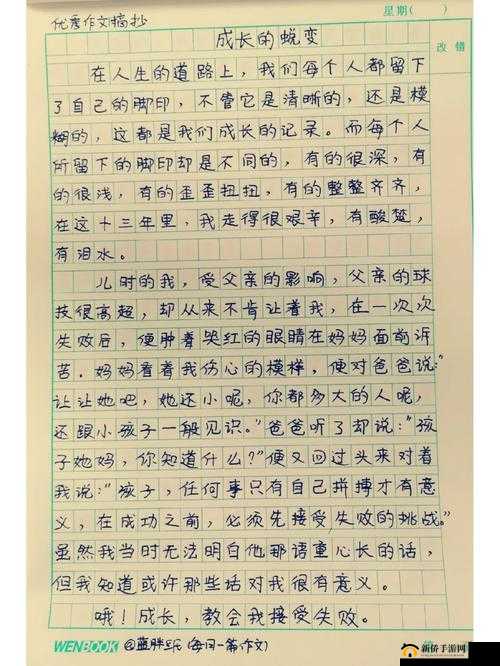 优秀作文摘抄
星期( )
改错
成长的蜕变
在人生的道路上，我们每个人都留下
了自己的脚印，不管它是清晰的，还是模
糊的，这都是我们成长的记录。而每个人
所留下的脚印却是不同的，有的很深，有
的很浅，有的歪歪扭扭，有的整整齐齐，
在这十三年里，我走得很艰辛，有酸楚，
有泪水。
儿时的我，受父亲的影响，父亲的球
技很高超，却从来不肯让着我，在一次次
失败后，便肿着哭红的眼睛在妈妈面前诉
苦．妈妈看着我伤心的模样，便对爸爸说：“
让让她吧，她还小呢，你都多大的人呢，
还跟小孩子一般见识。”爸爸听了却说：“孩
子她妈，你知道什么？”便又回过头来对着
我说：“孩子，任何事只有自己拼搏才有意
义，在成功之前，必须先接受失败的挑战。”
虽然我当时无法明白他那语重心长的话，
但我知道或许那些话对我很有意义。
哦！成长，教会我接受失败。
WENBOOK @蓝胖(每日一篇作文)
新侨手游网